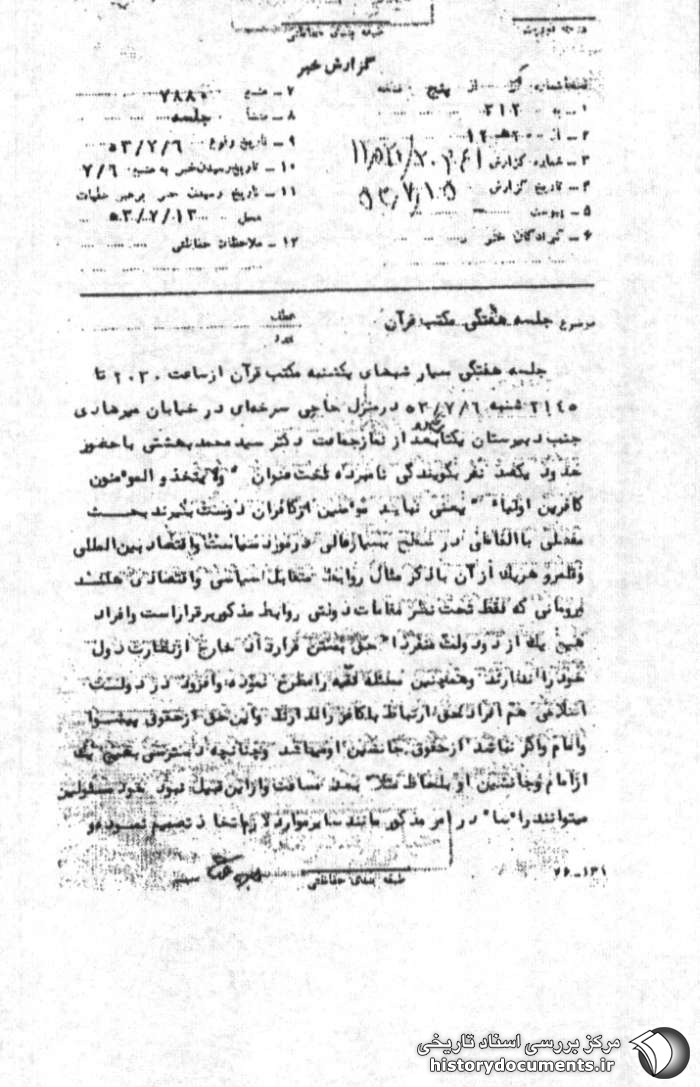 طبقه بندی حفاظتی
درجه فوریت
گزارش خبر
نسخه شماره از پنج نسخه
۱ ـ به ۳۱۲
۲ ـ از ۲۰ هـ ۱۲
۳ ـ شماره گزارش
۴ ـ تاریخ گزارش
۵ ـ پیوست
۶ ـ گیرندگان خبر
۷ ـ منبع ۷۸۸۰
۸ ـ منشأ جلسه
۹ ـ تاریخ وقوع ۵۳/۷/۶
۱۰ ـ تاریخ رسیدن خبر به منبع ۷/۶
۱۱ ـ تاریخ رسیدن خبر برهبر عملیات
محل ۵۳/۰۷/۱۳
۱۲ ـ ملاحظات حفاظتی
موضوع جلسه هفتگی مکتب قرآن
عطف
جلسه هفتگی سیار شبهای یکشنبه مکتب قرآن ازساعت ۲۰۳۰ تا
۲۱۴۵ شنبه ۵۳/۷/۶ درمنزل حاجی سرخه‌ای در خیابان میرهادی
جنب دبیرستان یکتا بعد از نمازجماعت دکتر سید محمد بهشتی باحضور
حدود یکصد نفر بگویندگی نامبرده تحت عنوان " ولا یتخذ و المومنون
کافرین اولیاء " یعنی نباید مومنین ازکافران دوست بگیرند بحث
مفصلی باالفاظی در سطح بسیارعالی درمورد سیاست واقتصاد بین‌المللی
وقلمرو هریک از آن باذکر مثال روابط متقابل سیاسی واقتصادی
که فقط تحت نظر مقامات دولتی روابط مذکور برقراراست وافراد
هیچ یک از دودولت منفردا" حق بستن قرارداد خارج ازنظارت دول
خودرا ندارند وهمچنین مسئله فقیه رامطرح نموده وافزود در دولت
اسلامی هم افراد حق ارتباط باکافر راندارند واین حق ازحقوق پیشوا
وامام واگر نباشد ازحقوق جانشین اومیباشد وچنانچه دسترسی بهیچ یک
ازامام وجانشین او بلحاظ مثلا" بعد مسافت وازاین قبیل نبود خود مسئولین
میتوانند را"سا" در امر مذکور مانند سایرموارد لازم اتخاذ تصمیم نموده و
طبقه بندی حفاظتی
۲۶-۱۳۱
مرکز بررسی اسناد تاریخی
historydocuments.ir